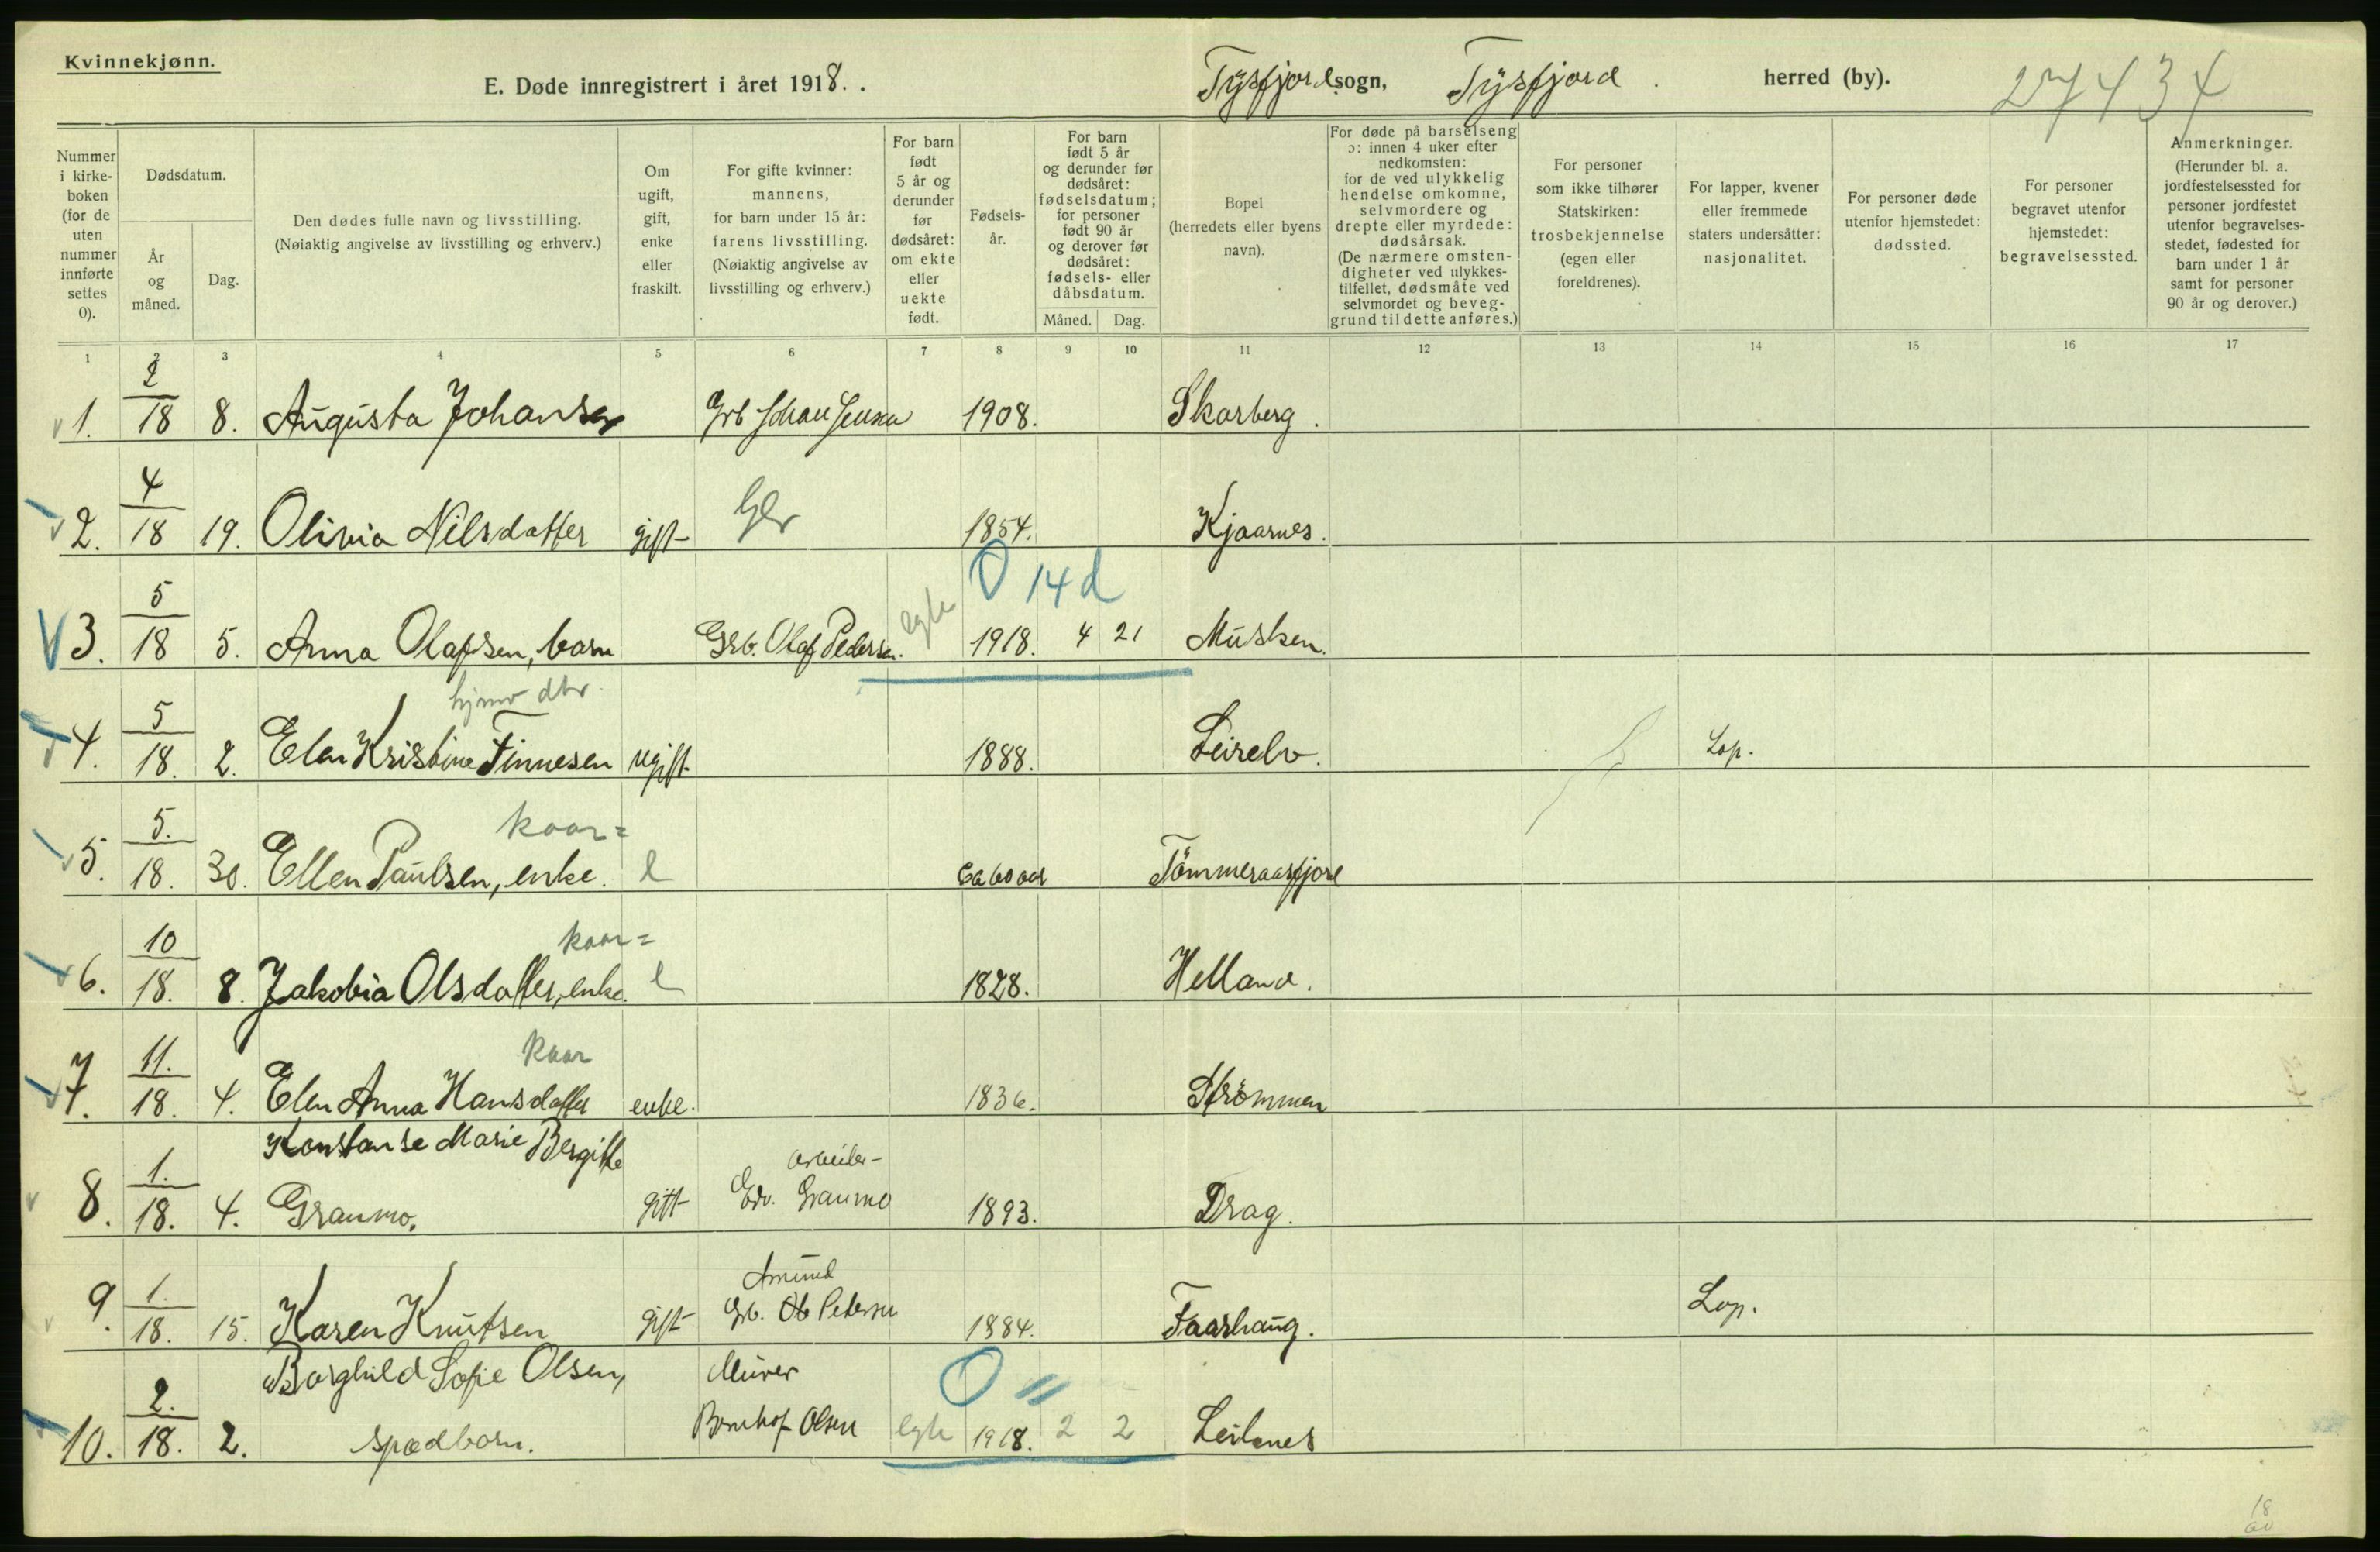 Kvinnekjønn.
E. Døde innregistrert i året 1918. .
Tysfjord sogn, Tysfjord . herred (by).
27434
Nummer
i kirke-
boken
(for de
uten
nummer
innførte
settes
0).
Dødsdatum.
År
og
måned.
Dag.
Den dødes fulle navn og livsstilling.
(Nøiaktig angivelse av livsstilling og erhverv.)
Om
ugift,
gift,
enke
eller
fraskilt.
For gifte kvinner:
mannens,
for barn under 15 år:
farens livsstilling.
(Nøiaktig angivelse av
livsstilling og erhverv.)
For barn
født
5 år og
derunder
før
dødsåret:
om ekte
eller
uekte
født.
Fødsels-
år.
For barn
født 5 år
og derunder før
dødsåret:
fødselsdatum;
for personer
født 90 år
og derover før
dødsåret:
fødsels- eller
dåbsdatum.
Måned. Dag.
Bopel
(herredets eller byens
navn).
For døde på barselseng
ɔ: innen 4 uker efter
nedkomsten:
for de ved ulykkelig
hendelse omkomne,
selvmordere og
drepte eller myrdede:
dødsårsak.
(De nærmere omsten-
digheter ved ulykkes-
tilfellet, dødsmåte ved
selvmordet og beveg-
grund til dette anføres.)
For personer
som ikke tilhører
Statskirken:
trosbekjennelse
(egen eller
foreldrenes).
For lapper, kvener
eller fremmede
staters undersåtter:
nasjonalitet.
For personer døde
utenfor hjemstedet:
dødssted.
For personer
begravet utenfor
hjemstedet:
begravelsessted.
Anmerkninger.
(Herunder bl. a.
jordfestelsessted for
personer jordfestet
utenfor begravelses-
stedet, fødested for
barn under 1 år
samt for personer
90 år og derover.)
1 2 3 4 5 6 7 8 9 10 11 12 13 14 15 16 17
2
1. 18 8. Augusta Johansen Grb Johan Jensen 1908. Skarberg.
4
2. 18 19. Olivia Nilsdatter gift 1854. Kjaarnes.
0 14 d
5
3. 18 5. Anna Olafsen, barn Grb. Olaf Pedersen. egte 1918. 4 21 Musken.
hjmv dtr.
5
4. 18. 2. Elen Kristine Finnesen ugift 1888. Leirelv. Lap.
kaar=
5.
5. 18. 30. Ellen Paulsen, enke. e Ca 60 aar Tömmeraasfjord
kaar=
10
6. 18. 8. Jakobia Olsdatter, enke. e 1828. Helland.
kaar
11.
7. 18. 4. Elen Anna Hansdatter enke. 1836. Strömmen
Konstanse Marie Bergitte
1. arbeider-
8. 18. 4. Granmo. gift Edv. Granmo 1893. Drag.
Amund
1.
9. 18. 15. Karen Knutsen gift Grb. Petersen 1884. Faarhaug. Lap.
Borghild Sofie Olsen, Murer
0
2.
10. 18. 2. spædbarn. Olsen egte 1918. 2 2 Leilenes
18